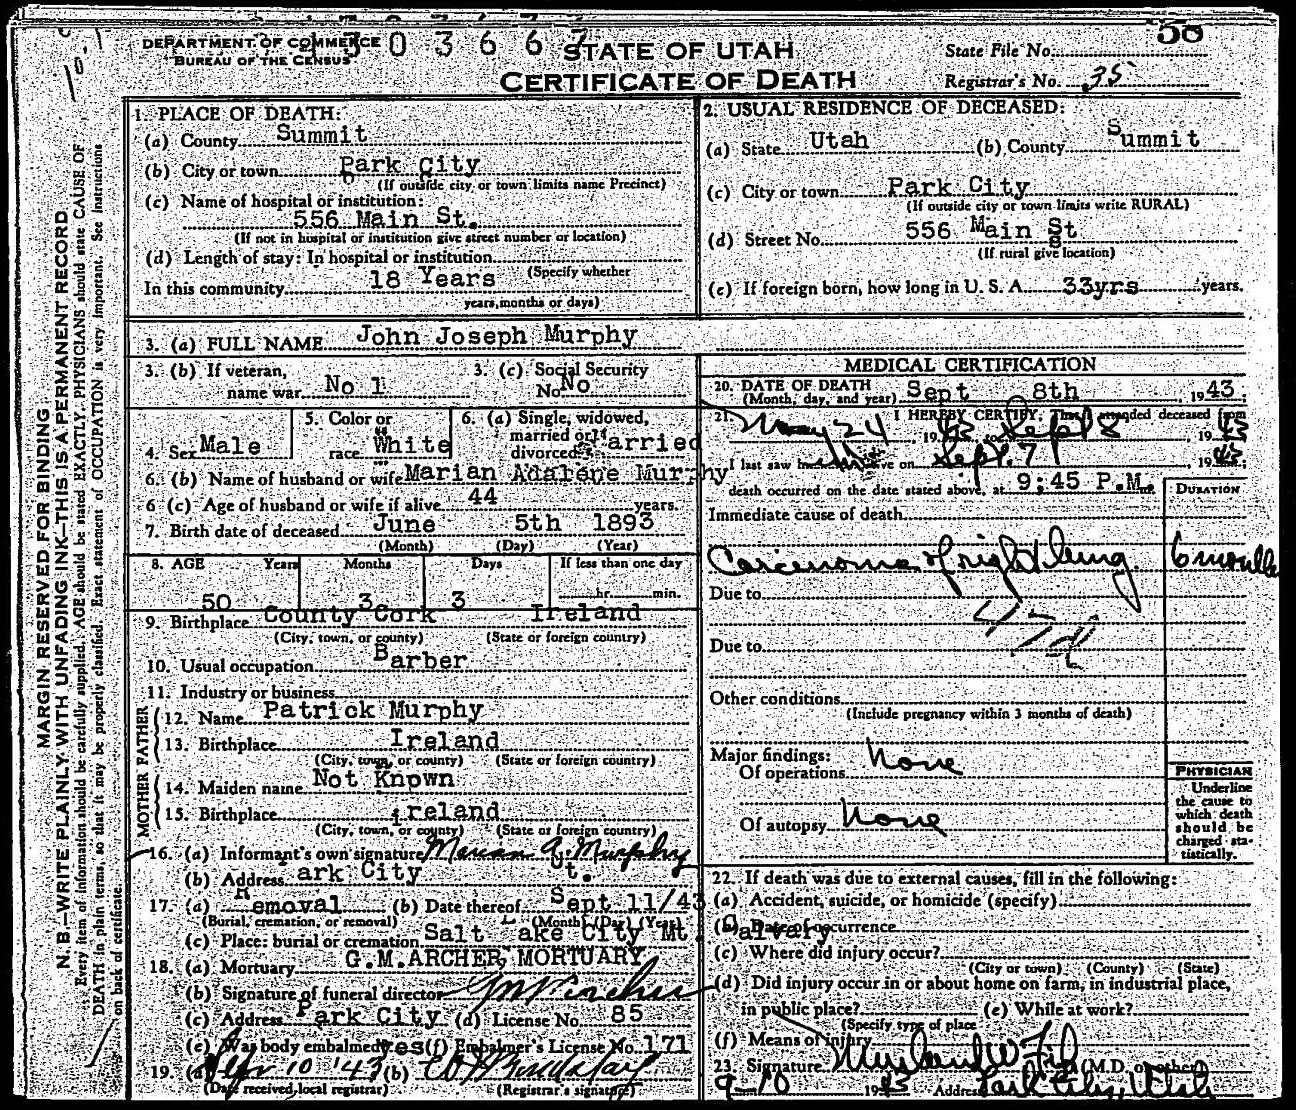 DEPARTMENT OF COMMERCE
BUREAU OF THE CENSUS
1303667
STATE OF UTAH
CERTIFICATE OF DEATH
State File No. 58
Registrar's No. 35
MARGIN RESERVED FOR BINDING
N. B.—WRITE PLAINLY, WITH UNFADING INK—THIS IS A PERMANENT RECORD
Every item of information should be carefully supplied. AGE should be stated EXACTLY. PHYSICIANS should state CAUSE OF
DEATH in plain terms, so that it may be properly classified. Exact statement of OCCUPATION is very important. See instructions
on back of certificate.
1. PLACE OF DEATH:
(a) County Summit
(b) City or town Park City
(If outside city or town limits name Precinct)
(c) Name of hospital or institution:
556 Main St.
(If not in hospital or institution give street number or location)
(d) Length of stay: In hospital or institution
(Specify whether
In this community 18 Years
years, months or days)
2. USUAL RESIDENCE OF DECEASED:
(a) State Utah (b) County Summit
(c) City or town Park City
(If outside city or town limits write RURAL)
(d) Street No. 556 Main St
(If rural give location)
(e) If foreign born, how long in U. S. A. 33yrs years.
3. (a) FULL NAME John Joseph Murphy
3. (b) If veteran,
name war No 1
3. (c) Social Security
No. No
4. Sex Male
5. Color or
race White
6. (a) Single, widowed,
married or
divorced Married
6. (b) Name of husband or wife Marian Adalene Murphy
6 (c) Age of husband or wife if alive 44 years.
7. Birth date of deceased June 5th 1893
(Month) (Day) (Year)
8. AGE Years Months Days If less than one day
50 3 3 hr. min.
9. Birthplace County Cork Ireland
(City, town, or county) (State or foreign country)
10. Usual occupation Barber
11. Industry or business
FATHER
12. Name Patrick Murphy
13. Birthplace Ireland
(City, town, or county) (State or foreign country)
MOTHER
14. Maiden name Not Known
15. Birthplace ireland
(City, town, or county) (State or foreign country)
16. (a) Informant's own signature Marian A. Murphy
(b) Address ark City Ut.
17. (a) Removal (b) Date thereof Sept 11/43
(Burial, cremation, or removal) (Month) (Day) (Year)
(c) Place: burial or cremation Salt Lake City Mt. Calvary
18. (a) Mortuary G.M.ARCHER MORTUARY
(b) Signature of funeral director GM Archer
(c) Address Park City (d) License No. 85
(e) Was body embalmed Yes (f) Embalmer's License No. 171
19. (a) 10 '43 (b)
(Date received local registrar) (Registrar's signature)
MEDICAL CERTIFICATION
20. DATE OF DEATH
(Month, day, and year) Sept 8th, 1943.
21. I HEREBY CERTIFY, That I attended deceased from
May 24, 1943 to Sept 8, 1943
I last saw him alive on Sept. 7, 1943;
death occurred on the date stated above, at 9:45 P.M.
DURATION
Immediate cause of death
Carcinoma of right lung 6 months
Due to
47d
Due to
Other conditions
(Include pregnancy within 3 months of death)
Major findings:
Of operations None
Of autopsy None
PHYSICIAN
Underline
the cause to
which death
should be
charged sta-
tistically.
22. If death was due to external causes, fill in the following:
(a) Accident, suicide, or homicide (specify)
(b) Date of occurrence
(c) Where did injury occur?
(City or town) (County) (State)
(d) Did injury occur in or about home on farm, in industrial place,
in public place? (e) While at work?
(Specify type of place
(f) Means of injury
23. Signature (M.D. or other)
9-10 1943 Address Park City, Utah